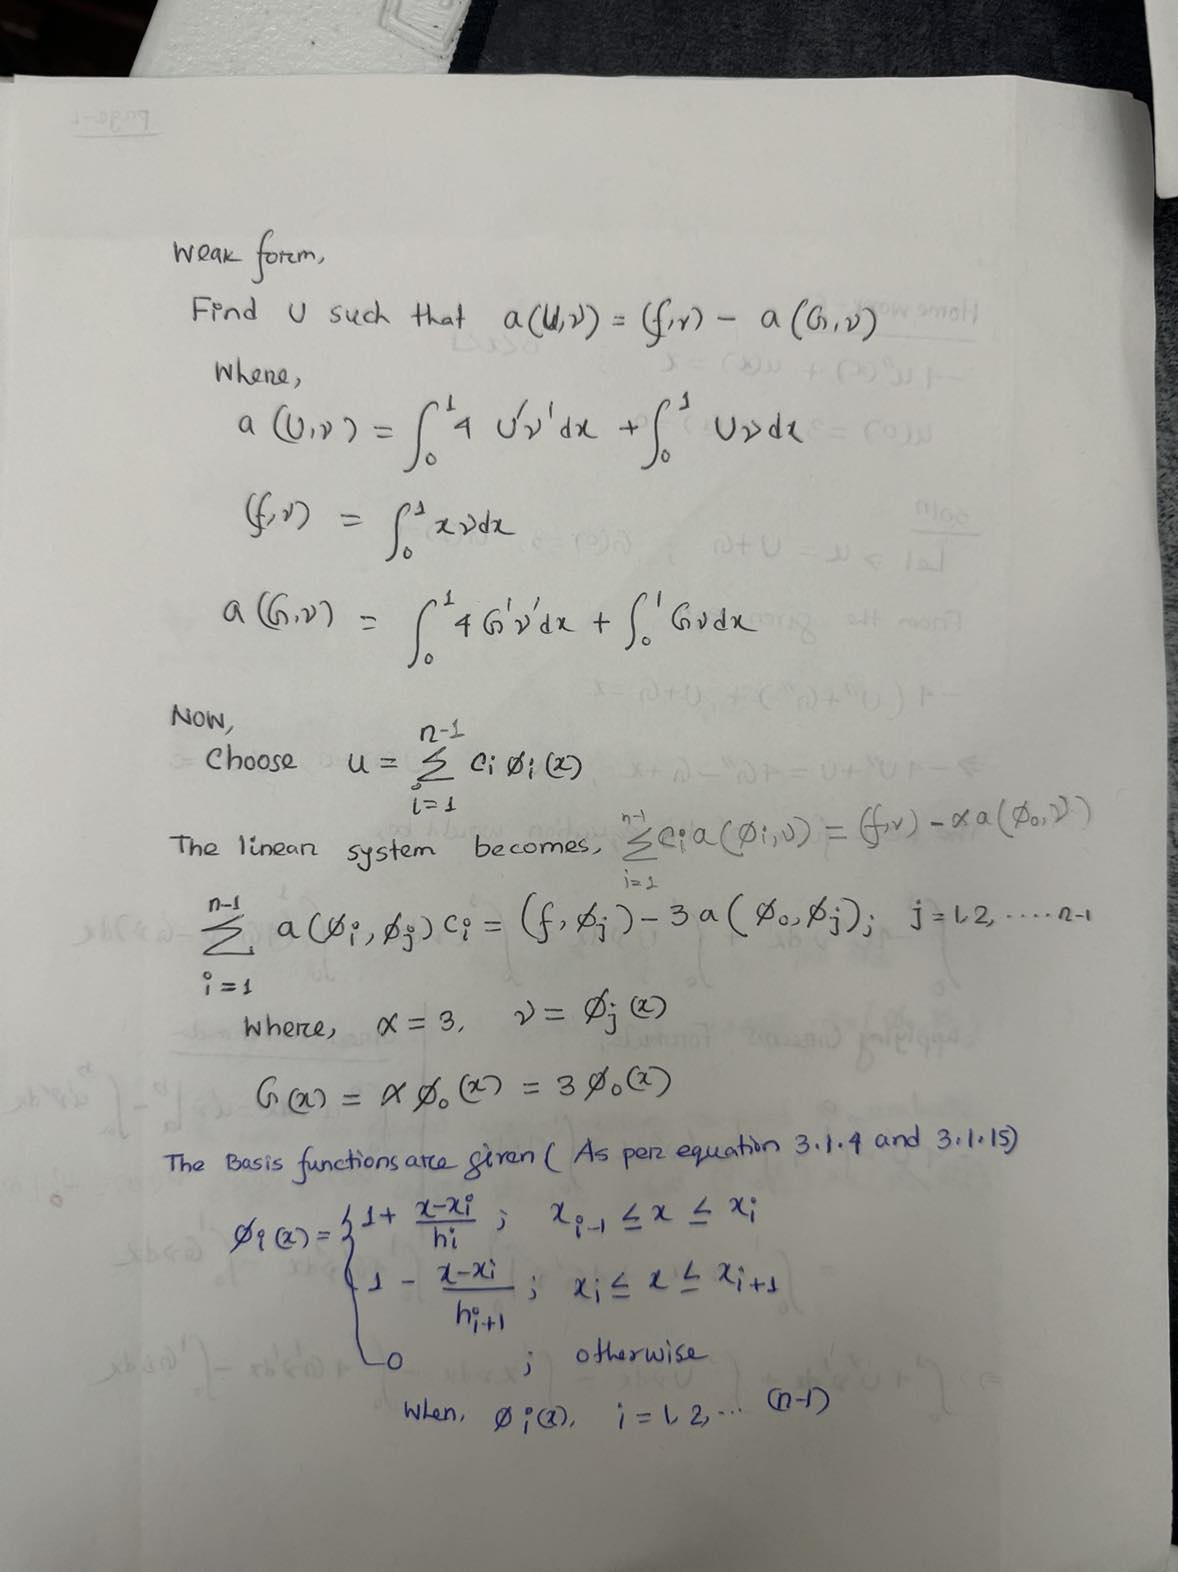 Weak form,
Find U such that a(U,v) = (f,v) - a(G,v)
Where,
a(U,v) = ∫₀¹ 4 U'v'dx + ∫₀¹ Uvdx
(f,v) = ∫₀¹ xvdx
a(G,v) = ∫₀¹ 4 G'v'dx + ∫₀¹ Gvdx
Now,
Choose u = Σ_{i=1}^{n-1} c_i φ_i(x)
The linear system becomes, Σ_{i=1}^{n-1} c_i a(φ_i,v) = (f,v) - α a(φ₀,v)
Σ_{i=1}^{n-1} a(φ_i, φ_j) c_i = (f, φ_j) - 3 a(φ₀, φ_j); j = 1, 2, ..... n-1
Where, α = 3, v = φ_j(x)
G(x) = α φ₀(x) = 3 φ₀(x)
The Basis functions are given (As per equation 3.1.4 and 3.1.15)
φ_i(x) = { 1 + (x-x_i)/h_i ; x_{i-1} ≤ x ≤ x_i
1 - (x-x_i)/h_{i+1} ; x_i ≤ x ≤ x_{i+1}
0 ; otherwise
When, φ_i(x), i = 1, 2, ... (n-1)